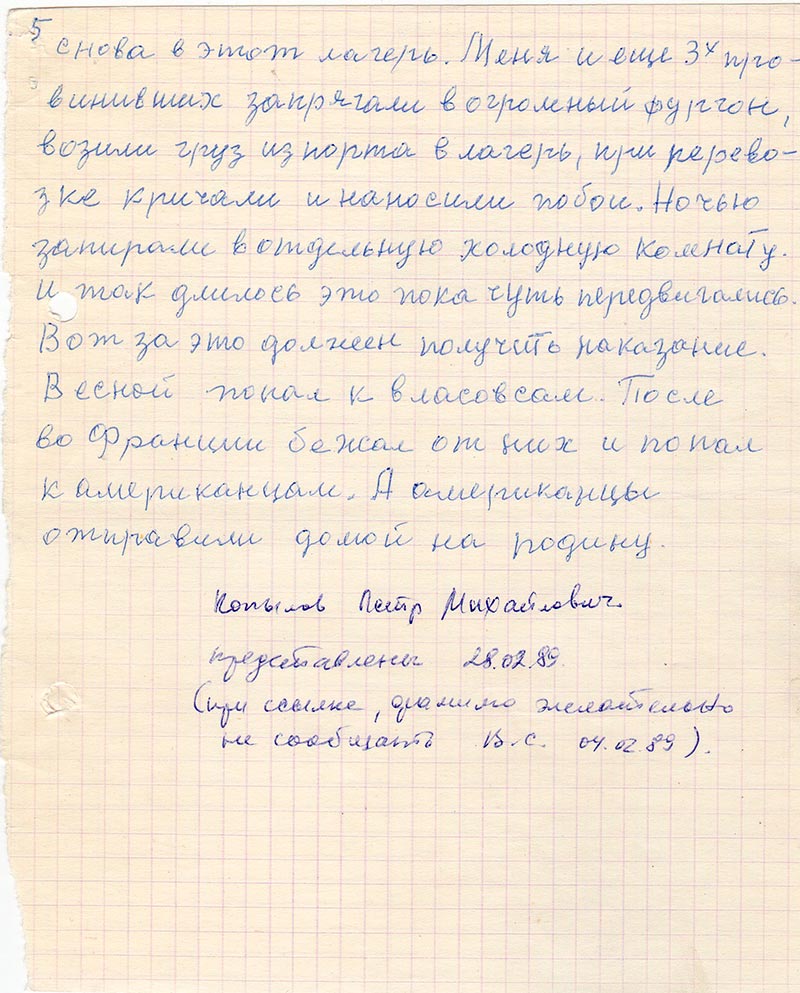 5
снова в этот лагерь. Меня и еще 3х про-
винивших запрягали в огромный фургон,
возили груз из порта в лагерь, при перево-
зке кричали и наносили побои. Ночью
запирали в отдельную холодную комнату.
И так длилось это пока чуть передвигались.
Вот за это должен получить наказание.
Весной попал к власовсам. После
во Франции бежал от них и попал
к американцам. А американцы
отправили домой на родину.
Копылов Петр Михайлович.
представлены 28.02.89.
(при ссылке, фамилию желательно
не сообщать В.С. 04.02.89).